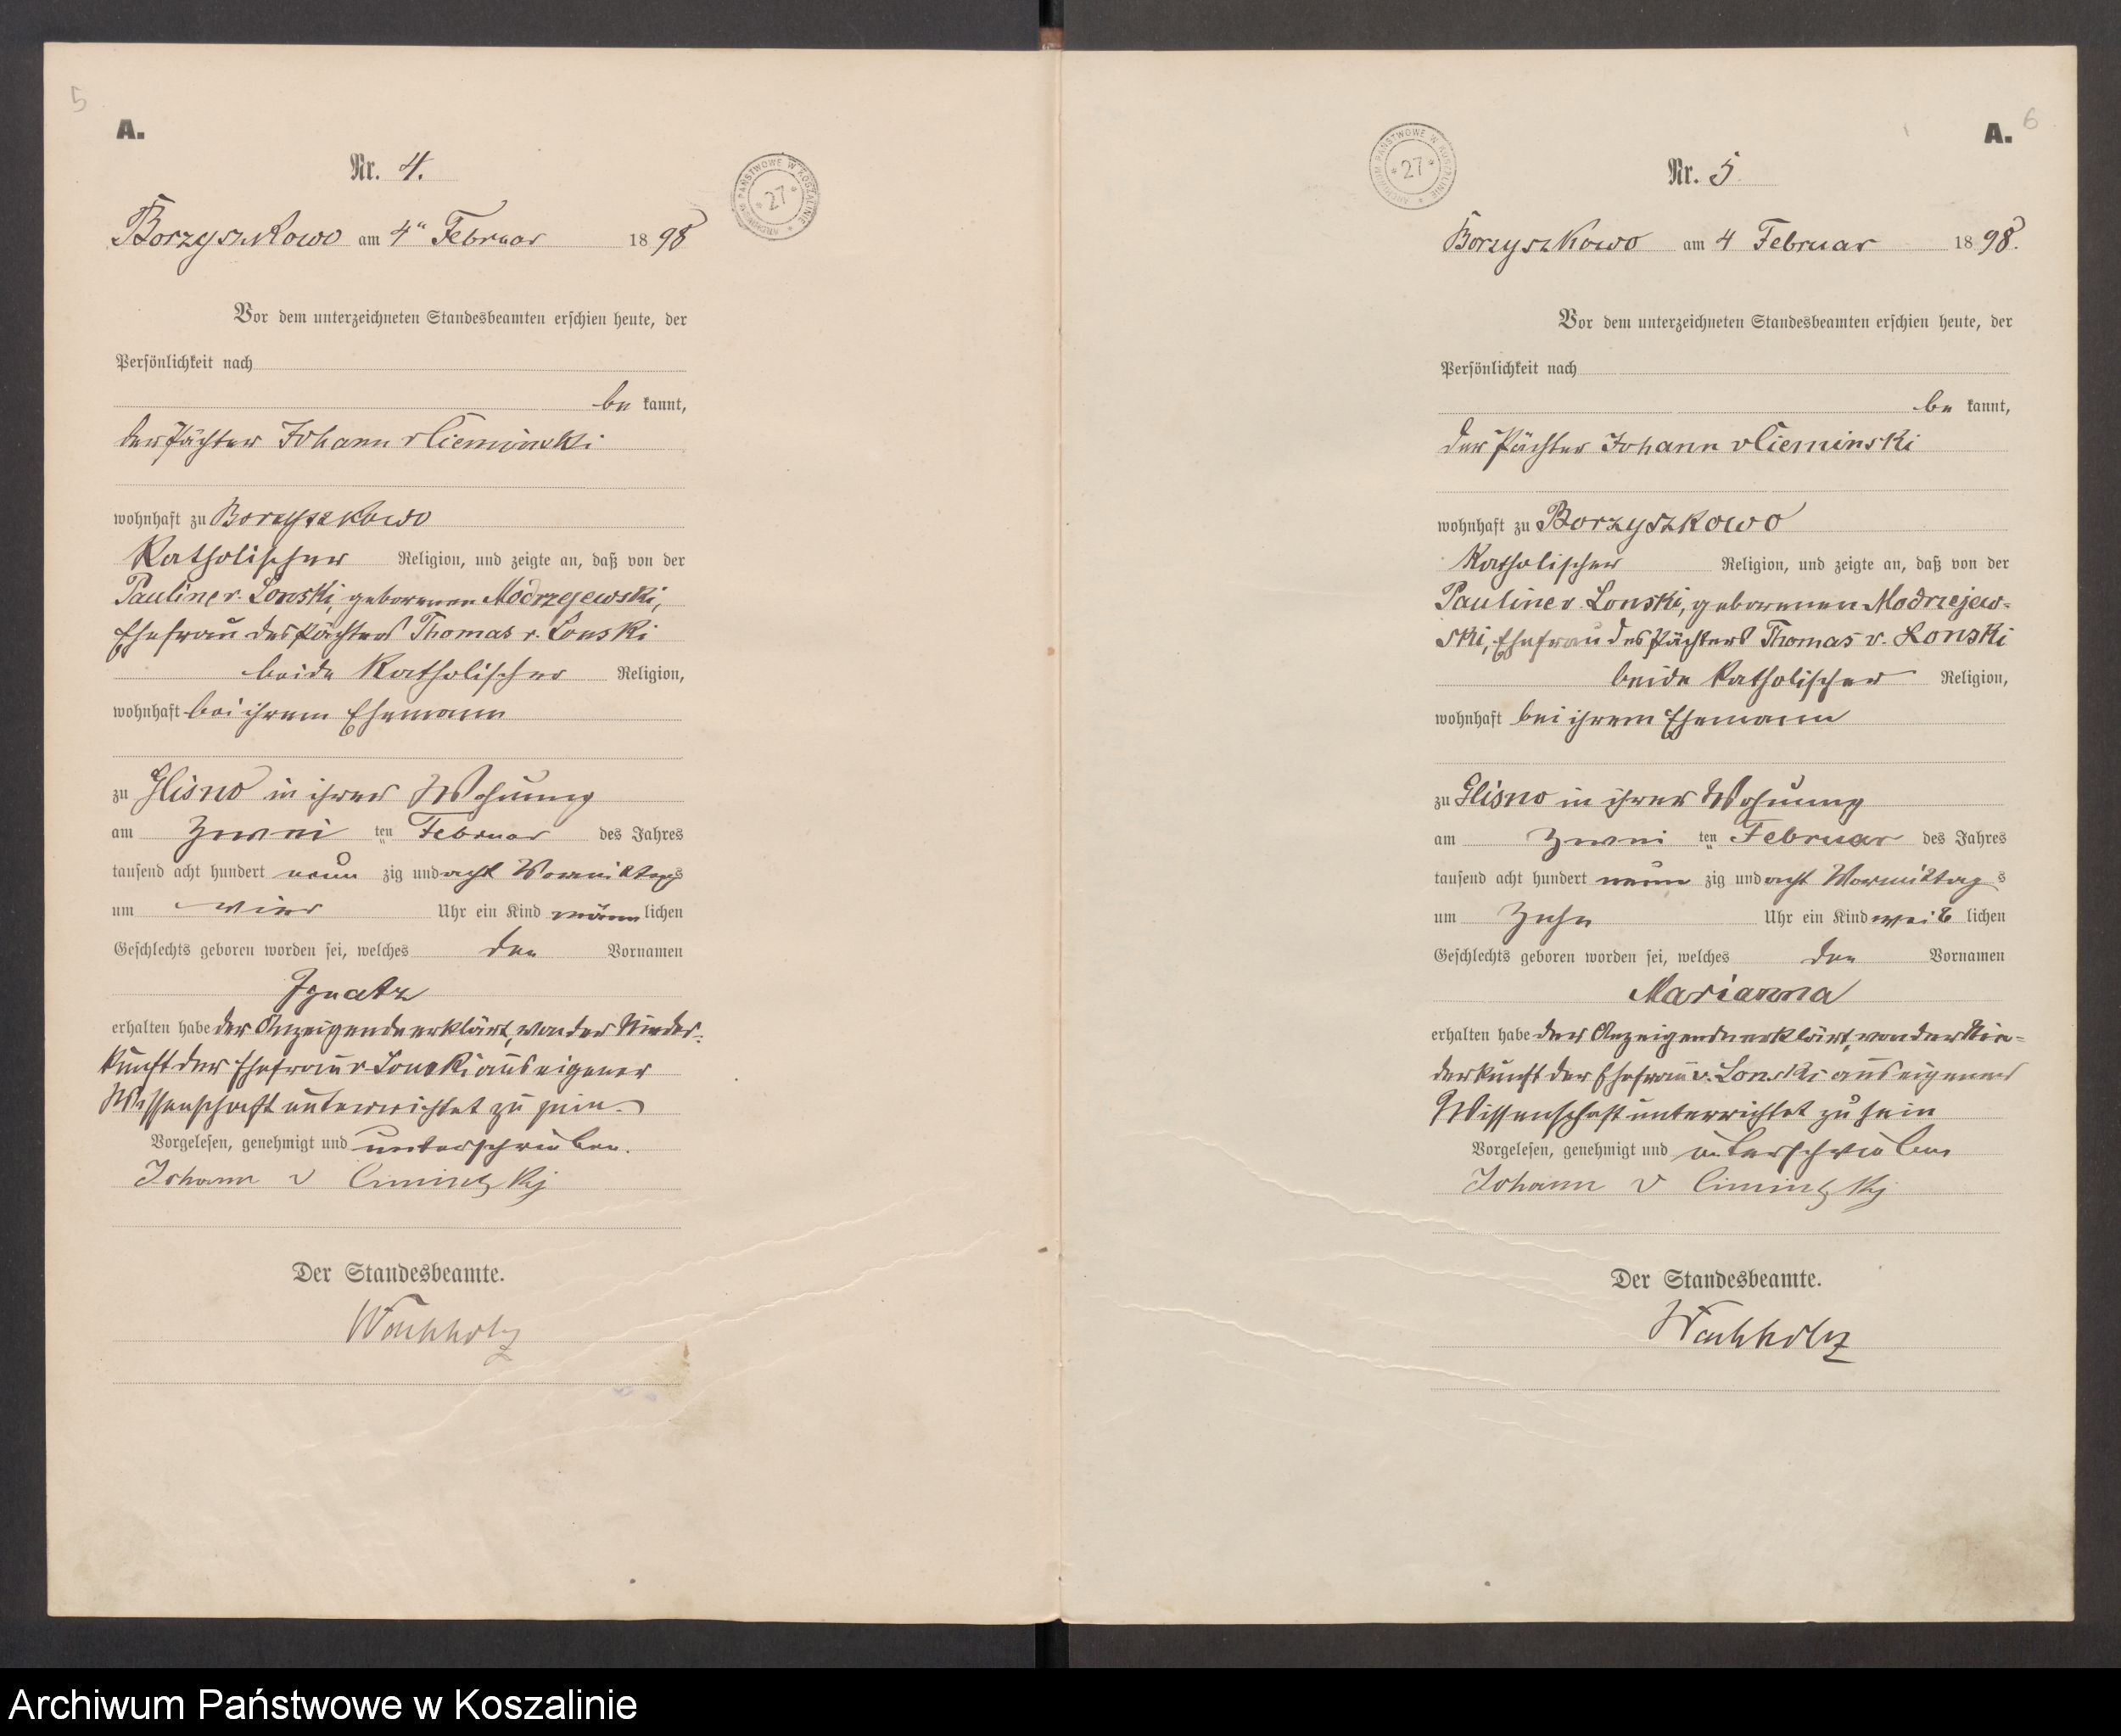 5
A.
Nr. 4.
ARCHIWUM PAŃSTWOWE W KOSZALINIE * 27 *
Borzyszkowo am 4ten Februar 1898
Vor dem unterzeichneten Standesbeamten erschien heute, der
Persönlichkeit nach
be kannt,
der Pächter Johann v Cieminski
wohnhaft zu Borzyszkowo
Katholischer Religion, und zeigte an, daß von der
Pauline v. Lonski, geborenen Modrzejewski,
Ehefrau des Pächters Thomas v. Lonski
beide Katholischer Religion,
wohnhaft bei ihrem Ehemann
zu Glisno in ihrer Wohnung
am zwei ten Februar des Jahres
tausend acht hundert neun zig und acht Vormittags
um vier Uhr ein Kind männ lichen
Geschlechts geboren worden sei, welches den Vornamen
Ignatz
erhalten habe der Anzeigende erklärt, von der Nieder-
kunft der Ehefrau v. Lonski aus eigener
Wissenschaft unterrichtet zu sein.
Vorgelesen, genehmigt und unterschrieben.
Johann v Ciminskj
Der Standesbeamte.
Wachholz
6
A.
ARCHIWUM PAŃSTWOWE W KOSZALINIE * 27 *
Nr. 5
Borzyszkowo am 4 Februar 1898.
Vor dem unterzeichneten Standesbeamten erschien heute, der
Persönlichkeit nach
be kannt,
der Pächter Johann v Cieminski
wohnhaft zu Borzyszkowo
Katholischer Religion, und zeigte an, daß von der
Pauline v. Lonski, geborenen Modrzejew-
ski, Ehefrau des Pächters Thomas v. Lonski
beide Katholischer Religion,
wohnhaft bei ihrem Ehemann
zu Glisno in ihrer Wohnung
am zwei ten Februar des Jahres
tausend acht hundert neun zig und acht Vormittag s
um zehn Uhr ein Kind weib lichen
Geschlechts geboren worden sei, welches den Vornamen
Marianna
erhalten habe der Anzeigende erklärt, von der Nie-
derkunft der Ehefrau v. Lonski aus eigener
Wissenschaft unterrichtet zu sein
Vorgelesen, genehmigt und unterschrieben
Johann v Ciminskj
Der Standesbeamte.
Wachholz
Archiwum Państwowe w Koszalinie